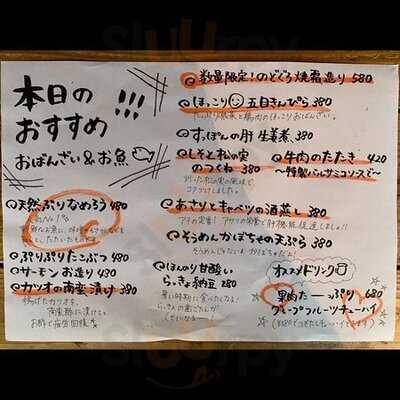 本日の
おすすめ!!!
おばんざい&お魚
数量限定!のどぐろ焼霜造り 580
ほっこり 五目きんぴら 380
すっぽんの肝 生姜煮 380
しそと松の実
のつくね 380
牛肉のたたき 420
〜特製バルサミコソースで〜
天然ぶりなめろう 480
あさりとキャベツの酒蒸し 380
そうめんかぼちゃの天ぷら 380
ぷりぷりたこぶつ 480
サーモンお造り 430
カツオの南蛮漬け 380
揚げたカツオを、
南蛮酢に漬けて。
お酢で疲労回復
ほんのり甘酸い
らっきょ納豆 280
暑い時期に食べたくなる!
オススメドリンク
果肉たーっぷり 680
グレープフルーツチューハイ